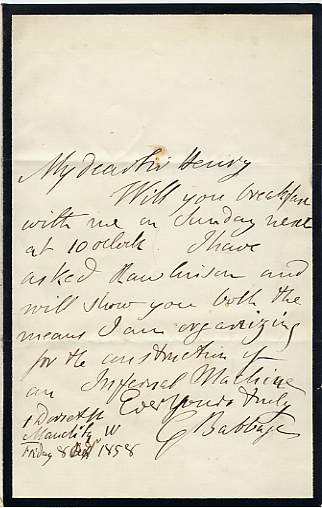 My dear Sir Henry
Will you breakfast
with me on Sunday next
at 10 oclock. I have
asked Rawlinson and
will show you both the
means I am organizing
for the construction of
an Infernal Machine
Ever Yours truly
C Babbage
1 Dorset St
Manch Sq W
Friday 8 Oct 1858